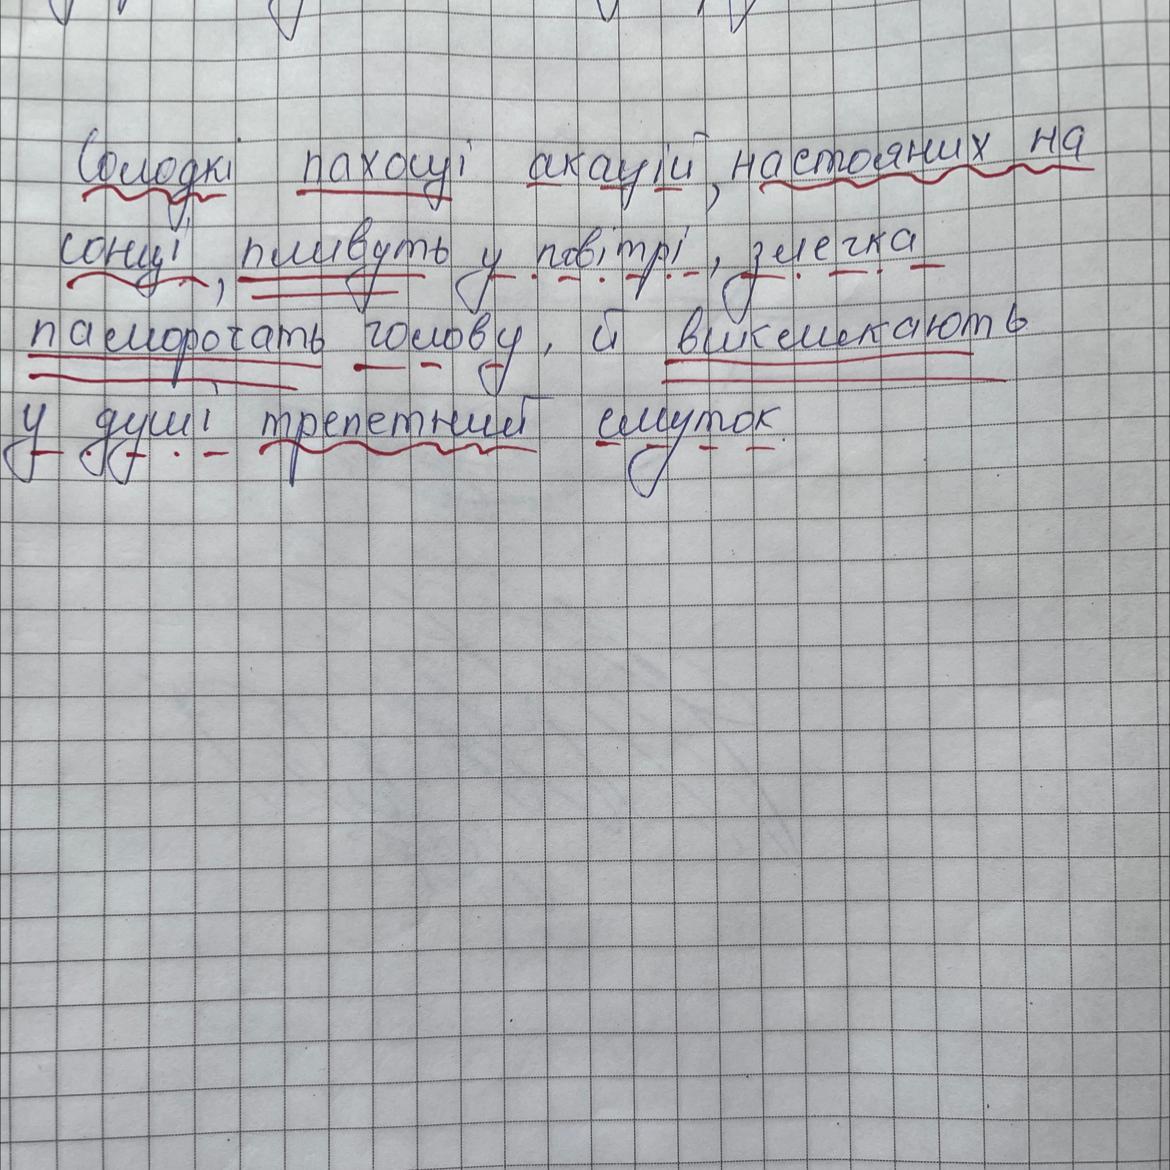 Солодкі пахощі акацій, настояних на
сонці, пливуть у повітрі, злегка
паморочать голову, й викликають
у душі трепетний смуток.